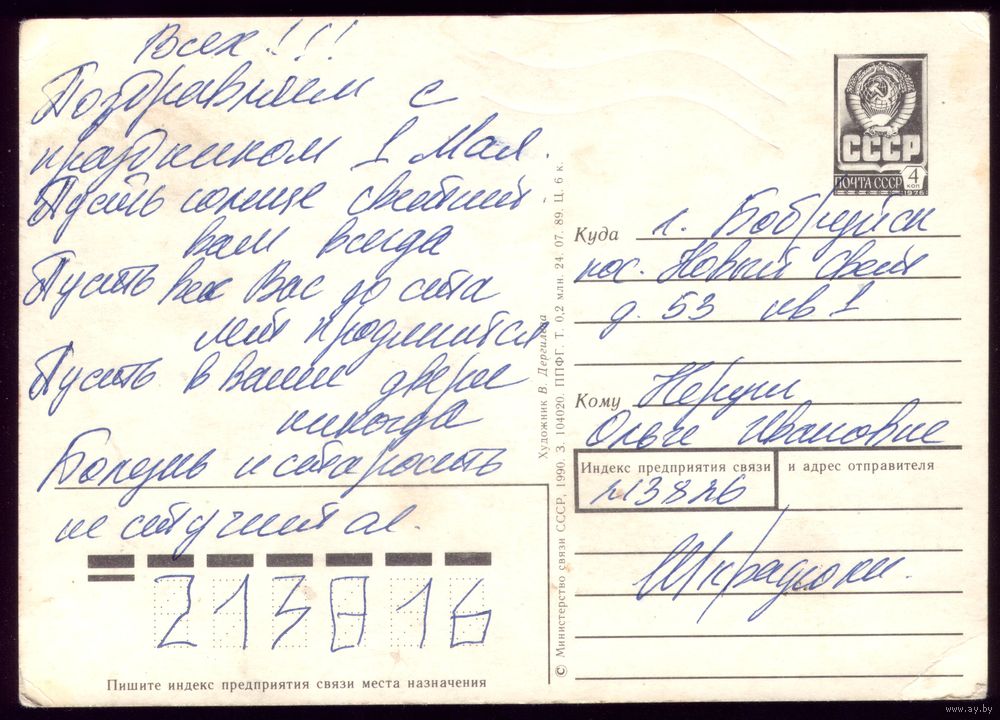 Всех!!!
Поздравляем с
праздником 1 Мая.
Пусть солнце светит
вам всегда
Пусть век Вас до ста
лет продлится
Пусть в Ваши двери
никогда
Болезнь и старость
не стучится.
213816
Пишите индекс предприятия связи места назначения
© Министерство связи СССР, 1990. З. 104020. ППФГ. Т. 0,2 млн. 24. 07. 89. Ц. 6 к.
Художник В. Дергилёва
СССР
ПОЧТА СССР 4 КОП
1976
Куда г. Бобруйск
пос. Новый свет
д. 53 кв 1
Кому
Ольге Ивановне
Индекс предприятия связи и адрес отправителя
213826
www.ay.by